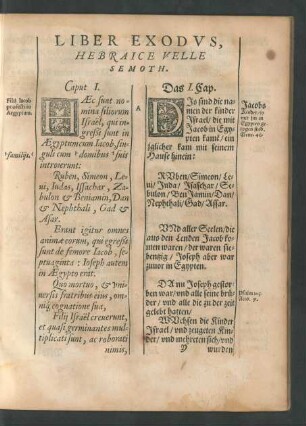 LIBER EXODVS,
HEBRAICE VELLE
SEMOTH.
Caput I.
Filii Iacob
profecti in
Aegyptum.
HÆc sunt no-
mina filiorum
Israel, qui in-
gressi sunt in
Ægyptum cum Iacob,
singuli cum domibus suis
introierunt:
familijs.
Ruben, Simeon, Le-
ui, Iudas, Issachar, Za-
bulon & Beniamin, Dan
& Nephthali, Gad &
Aser.
Erant igitur omnes
animæ eorum, qui egressi
sunt de femore Iacob, se-
ptuaginta: Ioseph autem
in Ægypto erat.
Quo mortuo, & vni-
uersis fratribus eius, om-
niq́; cognatione sua,
Filij Israel creuerunt,
et quasi germinantes mul-
tiplicati sunt, ac roborati
nimis,
A
Das I. Cap.
DIs sind die na-
men der kinder
Israel/ die mit
Jacob in Egy-
pten kamē/ ein
jglicher kam mit seinem
Hause hinein:
Jacobs
RVben/Simeon/ Le-
ui/ Juda/ Isaschar/ Se-
bulon/ Ben Jamin/ Dan/
Nephthali/ Gad/ Asser.
VNd aller Seelen/ die
aus den Lenden Jacob ko-
men waren/ der waren sie-
bentzig/ Joseph aber war
zuuor in Egypten.
DAnu Joseph gestor-
ben war/ vnd alle seine brü-
der/ vnd alle die zu der zeit
gelebt hatten/
WVchsen die Kinder
Israel/ vnd zeugeten Kin-
der/ vnd mehreten sich/ vnd
wurden